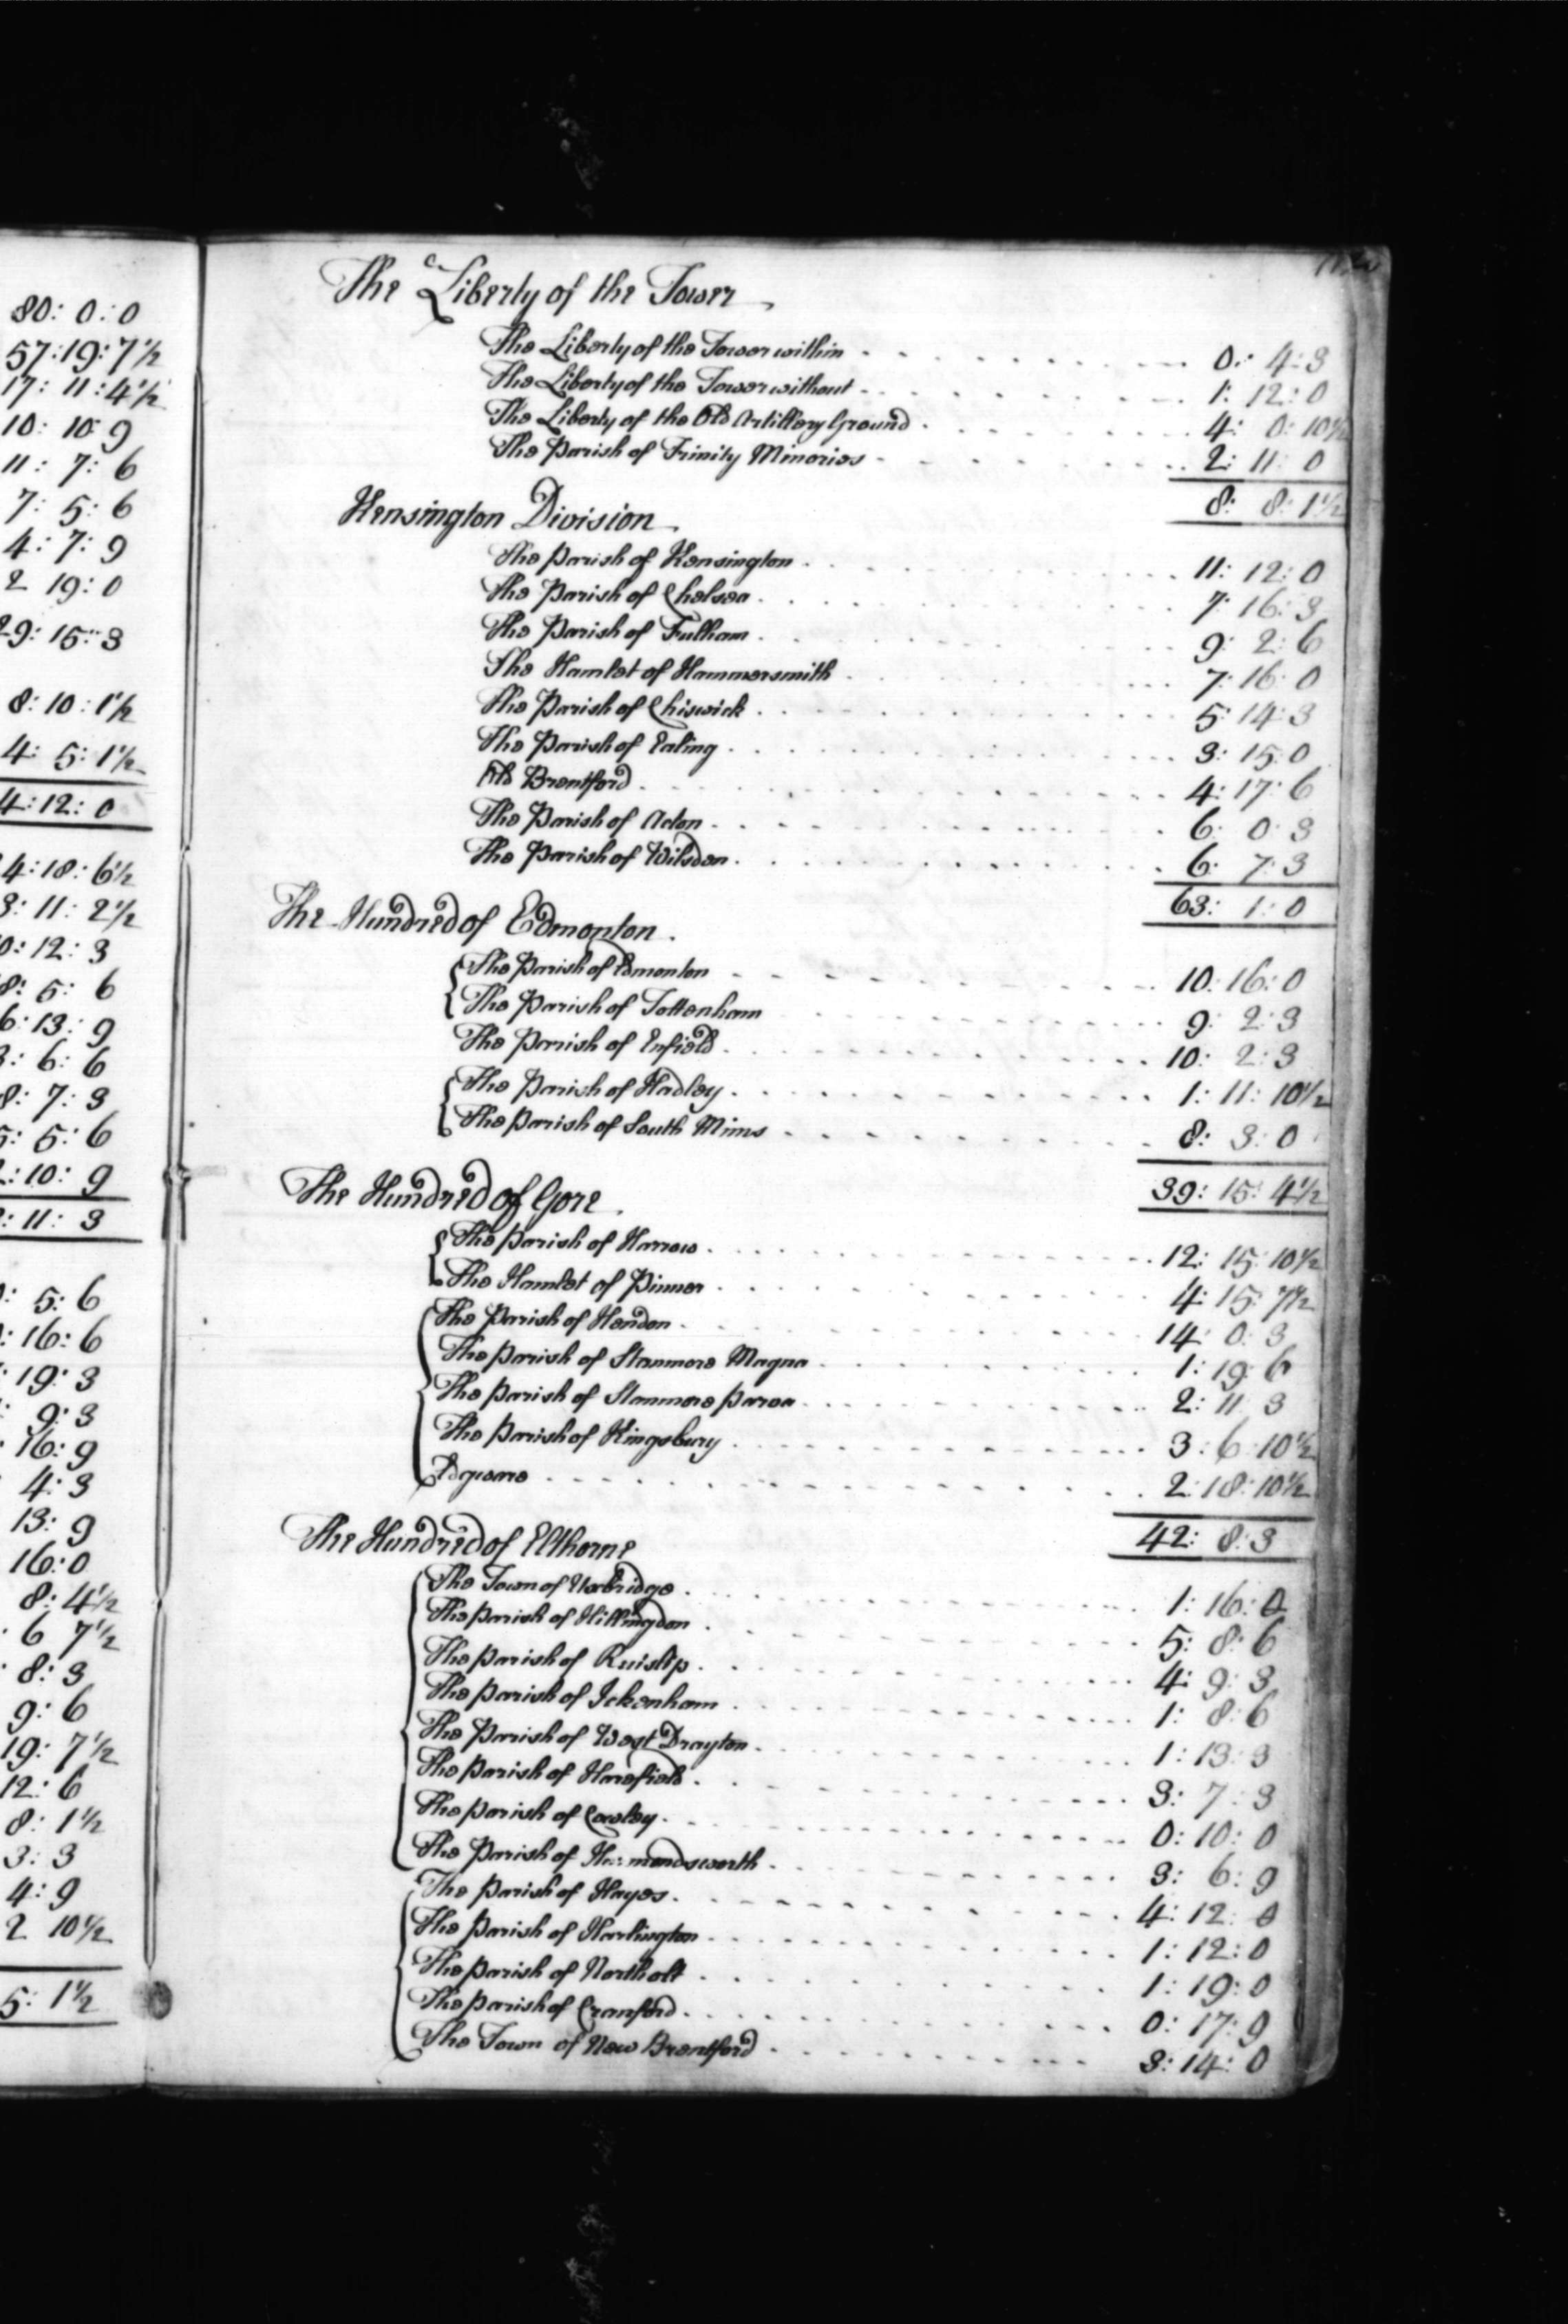 80: 0: 0
57: 19: 7½
17: 11: 4½
10: 10: 9
11: 7: 6
7: 5: 6
4: 7: 9
2 19: 0
29: 15: 3
8: 10: 1½
4: 5: 1½
4: 12: 0
4: 18: 6½
3: 11: 2½
0: 12: 3
8: 5: 6
6: 13: 9
3: 6: 6
8: 7: 3
5: 5: 6
2: 10: 9
: 11: 3
: 5: 6
: 16: 6
: 19: 3
: 9: 3
: 16: 9
4: 3
13: 9
16: 0
8: 4½
6 7½
8: 3
9: 6
19: 7½
12: 6
8: 1½
3: 3
4: 9
2 10½
5: 1½
The Liberty of the Tower
The Liberty of the Tower within 0: 4: 3
The Liberty of the Tower without 1: 12: 0
The Liberty of the Old Artillery Ground 4: 0: 10½
The Parish of Trinity Minories 2: 11: 0
8: 8: 1½
Kensington Division
The Parish of Kensington 11: 12: 0
The Parish of Chelsea 7: 16: 3
The Parish of Fulham 9: 2: 6
The Hamlet of Hammersmith 7: 16: 0
The Parish of Chiswick 5: 14: 3
The Parish of Ealing 3: 15: 0
Old Brentford 4: 17: 6
The Parish of Acton 6: 0: 3
The Parish of Wilsdon 6: 7: 3
63: 1: 0
The Hundred of Edmonton
The Parish of Edmonton 10: 16: 0
The Parish of Tottenham 9: 2: 3
The Parish of Enfield 10: 2: 3
The Parish of Hadley 1: 11: 10½
The Parish of South Mims 8: 3: 0
39: 15: 4½
The Hundred of Gore
The Parish of Harrow 12: 15: 10½
The Hamlet of Pinner 4: 15: 7½
The Parish of Hendon 14: 0: 3
The Parish of Stanmore Magna 1: 19: 6
The Parish of Stanmore Parva 2: 11: 3
The Parish of Kingsbury 3: 6: 10½
Edgware 2: 18: 10½
42: 8: 3
The Hundred of Elthorne
The Town of Uxbridge 1: 16: 0
The Parish of Hillingdon 5: 8: 6
The Parish of Ruislip 4: 9: 3
The Parish of Ickenham 1: 8: 6
The Parish of West Drayton 1: 13: 3
The Parish of Harefield 3: 7: 3
The Parish of Cowley 0: 10: 0
The Parish of Harmondsworth 3: 6: 9
The Parish of Hayes 4: 12: 0
The Parish of Harlington 1: 12: 0
The Parish of Northolt 1: 19: 0
The Parish of Cranford 0: 17: 9
The Town of New Brentford 3: 14: 0